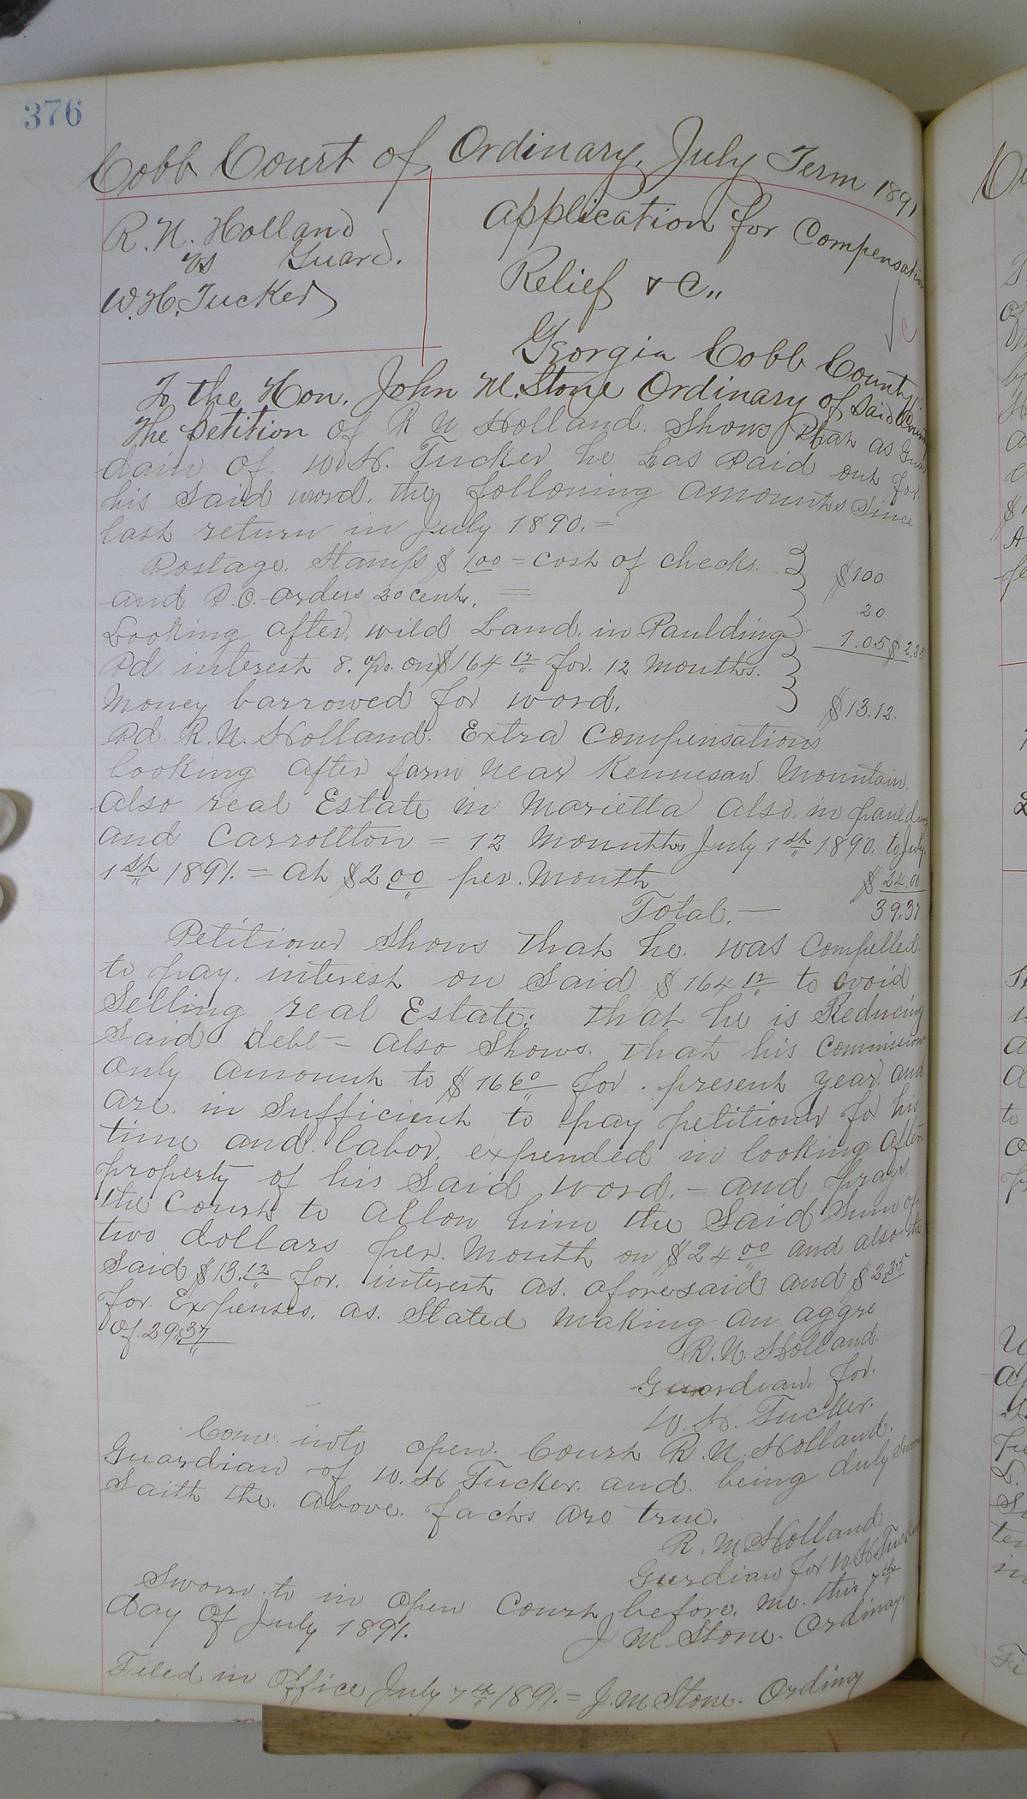 376
Cobb Court of Ordinary, July Term 1891
R. N. Holland
vs Guard.
W. H. Tucker
Application for Compensation
Relief & C,,
Georgia Cobb County
To the Hon. John M. Stone Ordinary of Said County
The Petition of R N Holland. Shows that as Guar
dain of. W. H. Tucker he has Paid out for
his Said word. the following amounts Since
last return in July 1890. =
Postage. Stamps $ 1.00 = cost of checks. $100
and P. O. orders 20 cents. = 20
Looking after. wild Land. in Paulding 1.05 $ 2.25
Pd interest 8. % on $164 12 for. 12 Months.
Money barrowed for word. $13.12.
Pd. R. N. Holland. Extra Compensations
looking after farm Near Kennesaw Mountain.
also real Estate in Marietta also. in paulding
and Carrollton = 12 Mounths July 1st 1890. to July
1st 1891. = at $2 00 per. Month $ 24.00
Total. — 39.37
Petitioner Shows that he. was Compelled.
to pay. interest on Said $ 164 12 to avoid
Selling real Estate: that he is Reducing
Said debt = also Shows. that his Commission
only amount to $ 16 60 for. present year. and
are. in Sufficient to pay petitioner for his
time and labor. expended in looking after
property of his Said word. = and prays.
the Court to allow him the Said Sum of
two dollars per. Month or $24 00 and also the
Said $ 13.12 for. interest as. aforesaid and $ 2 25
for. Expenses. as. Stated Making an aggre
of. 39.37
R. N. Holland.
Guardian. for.
W. H. Tucker.
Come into open. Court R. N. Holland.
Guardian of W. H Tucker. and. being duly Sworn
Saith the. above. facts are true.
R. M Holland
Gurdian for W. H Tucker
Sworn. to in open Court before. me. this 7th
day of July 1891.
J M Stone. Ordinay.
Filed in Office July 7th 1891. = J. M Stone. Ordinay